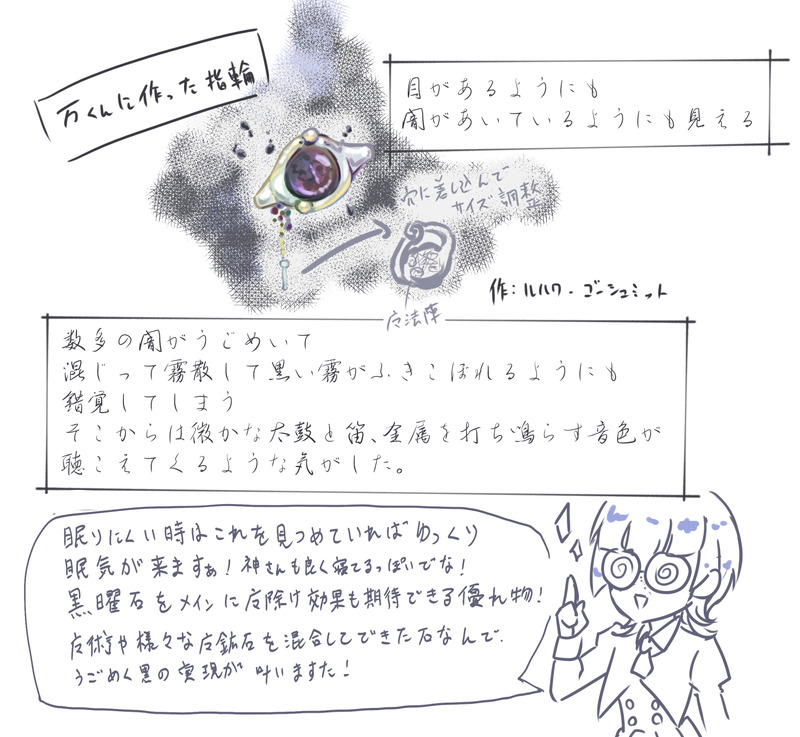 万くんに作った指輪
目があるようにも
闇があいているようにも見える
穴に差し込んで
サイズ調整
作:ルハワ・ゴーシュミット
数多の闇がうごめいて
混じって霧散して黒い霧がふきこぼれるようにも
錯覚してしまう
そこからは微かな太鼓と笛、金属を打ち鳴らす音色が
聴こえてくるような気がした。
眠りにくい時はこれを見つめていればゆっくり
眠気が来ますぁ!神さんも良く寝てるっぽいでな!
黒曜石をメインに 除け効果も期待できる優れ物!
術や様々な 鉱石を混合してできた石なんで、
うごめく黒の実現が叶いますた!